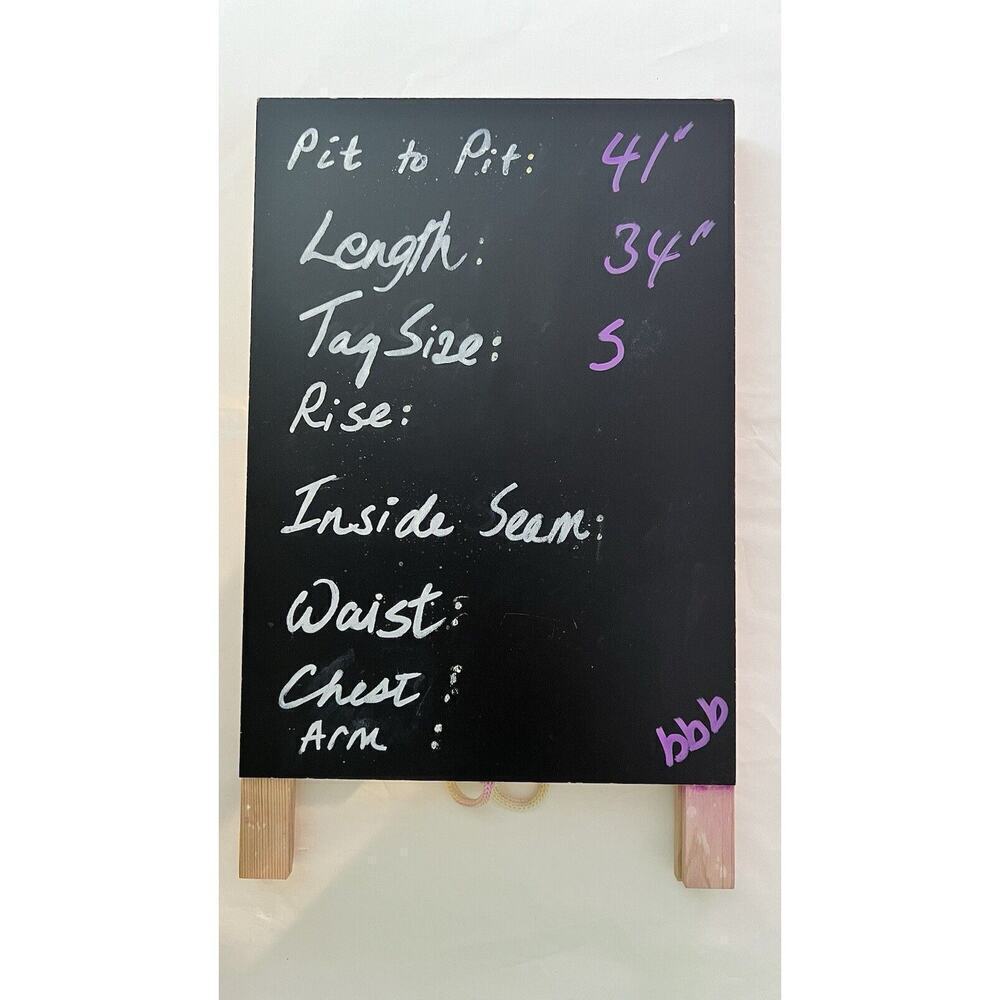 Pit to Pit: 41"
Length: 34"
Tag Size: S
Rise:
Inside Seam:
Waist:
Chest :
Arm :
bbb